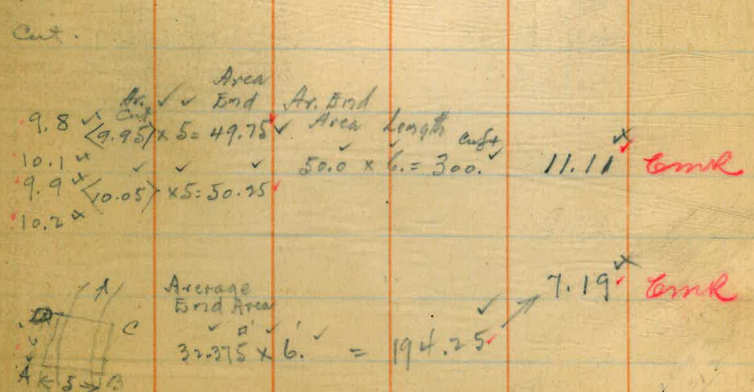 Cut.
Area
Av. Cut End Av. End
9.8 (9.95) x 5 = 49.75 Area Length cuft
10.1 50.0 x 6. = 300. 11.11 EMR
9.9 (10.05) x5=50.25
10.2
A Average 7.19 EMR
End Area
D C
32.375 x 6. = 194.25
A 5 B